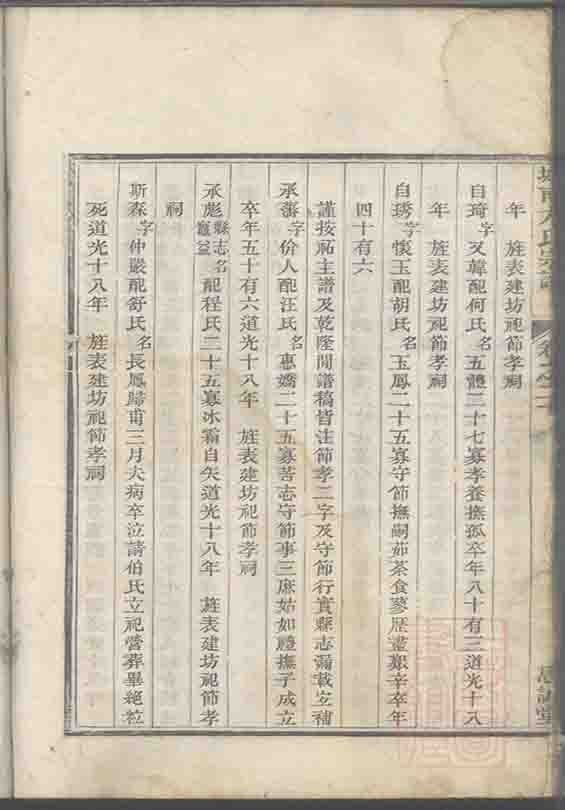 城南方氏宗譜
卷
年　旌表建坊祀節孝祠
自琦字又韓配何氏名五體二十七寡孝養撫孤卒年八十有三道光十八
年　旌表建坊祀節孝祠
自琇字懷玉配胡氏名玉鳳二十五寡守節撫嗣茹茶食蓼歷盡艱辛卒年
四十有六
謹按祏主譜及乾隆間譜稿皆注節孝二字及守節行實縣志漏載宜補
承藩字价人配汪氏名惠嬌二十五寡苦志守節事三庶姑如禮撫子成立
卒年五十有六道光十八年　旌表建坊祀節孝祠
承彪縣志名配程氏二十五寡冰霜自矢道光十八年　旌表建坊祀節孝
祠
斯森字仲嚴配舒氏名長鳳歸甫三月夫病卒泣請伯氏立祀營葬畢絕粒
死道光十八年　旌表建坊祀節孝祠